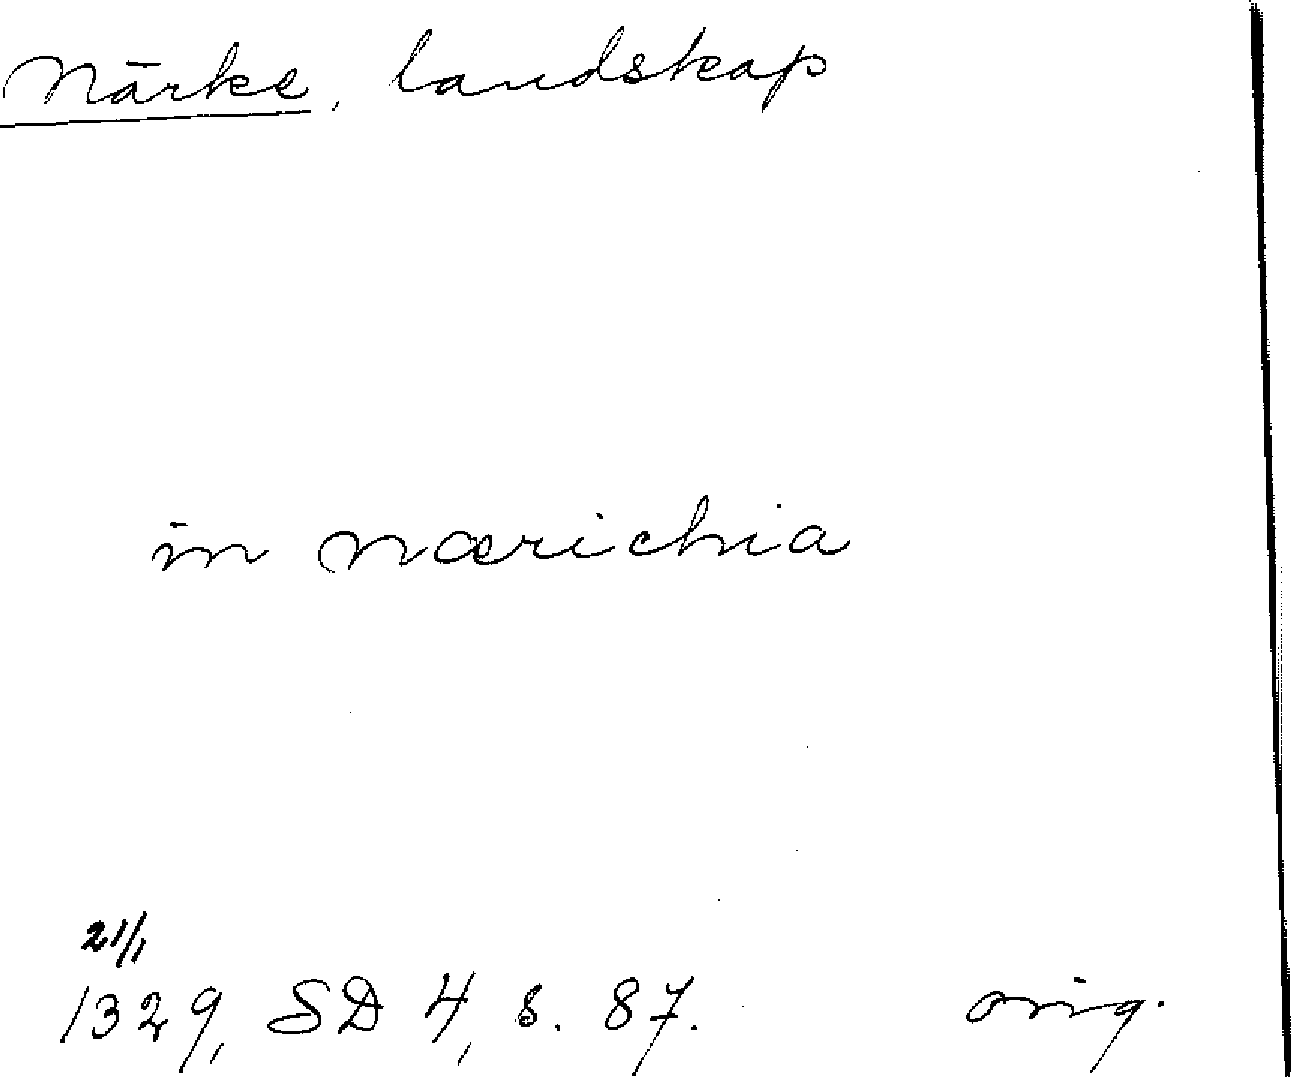 Närke, landskap
in nærichia
21/1
1329, SD 4, s. 87. orig.